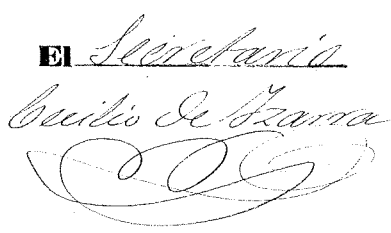 El Secretario
Cecilio de Yzarra